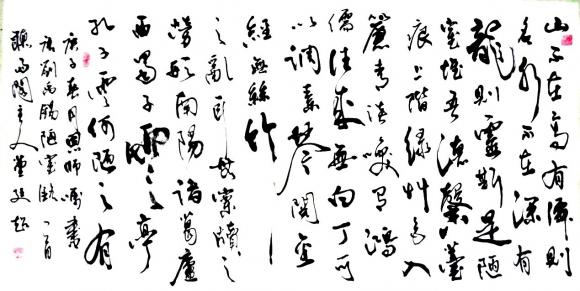 山不在高有僊則
名水不在深有
龍則靈斯是陋
室惟吾德馨苔
痕上階綠草色入
簾青談笑有鴻
儒往來無白丁可
以調素琴閱金
經無絲竹
之亂耳無案牘之
勞形南陽諸葛廬
西蜀子雲亭
孔子云何陋之有
庚子春月恩師囑書
劉禹錫陋室銘一首
雨閣主人董